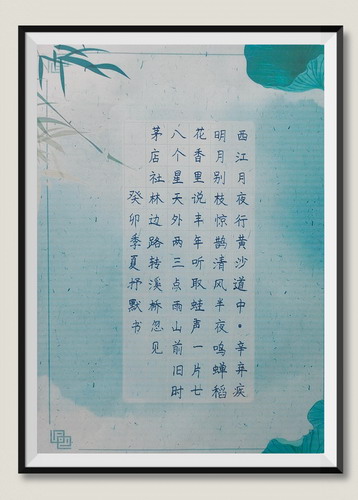 西江月夜行黄沙道中·辛弃疾
明月别枝惊鹊清风半夜鸣蝉稻
花香里说丰年听取蛙声一片七
八个星天外两三点雨山前旧时
茅店社林边路转溪桥忽见
癸卯季夏抒默书